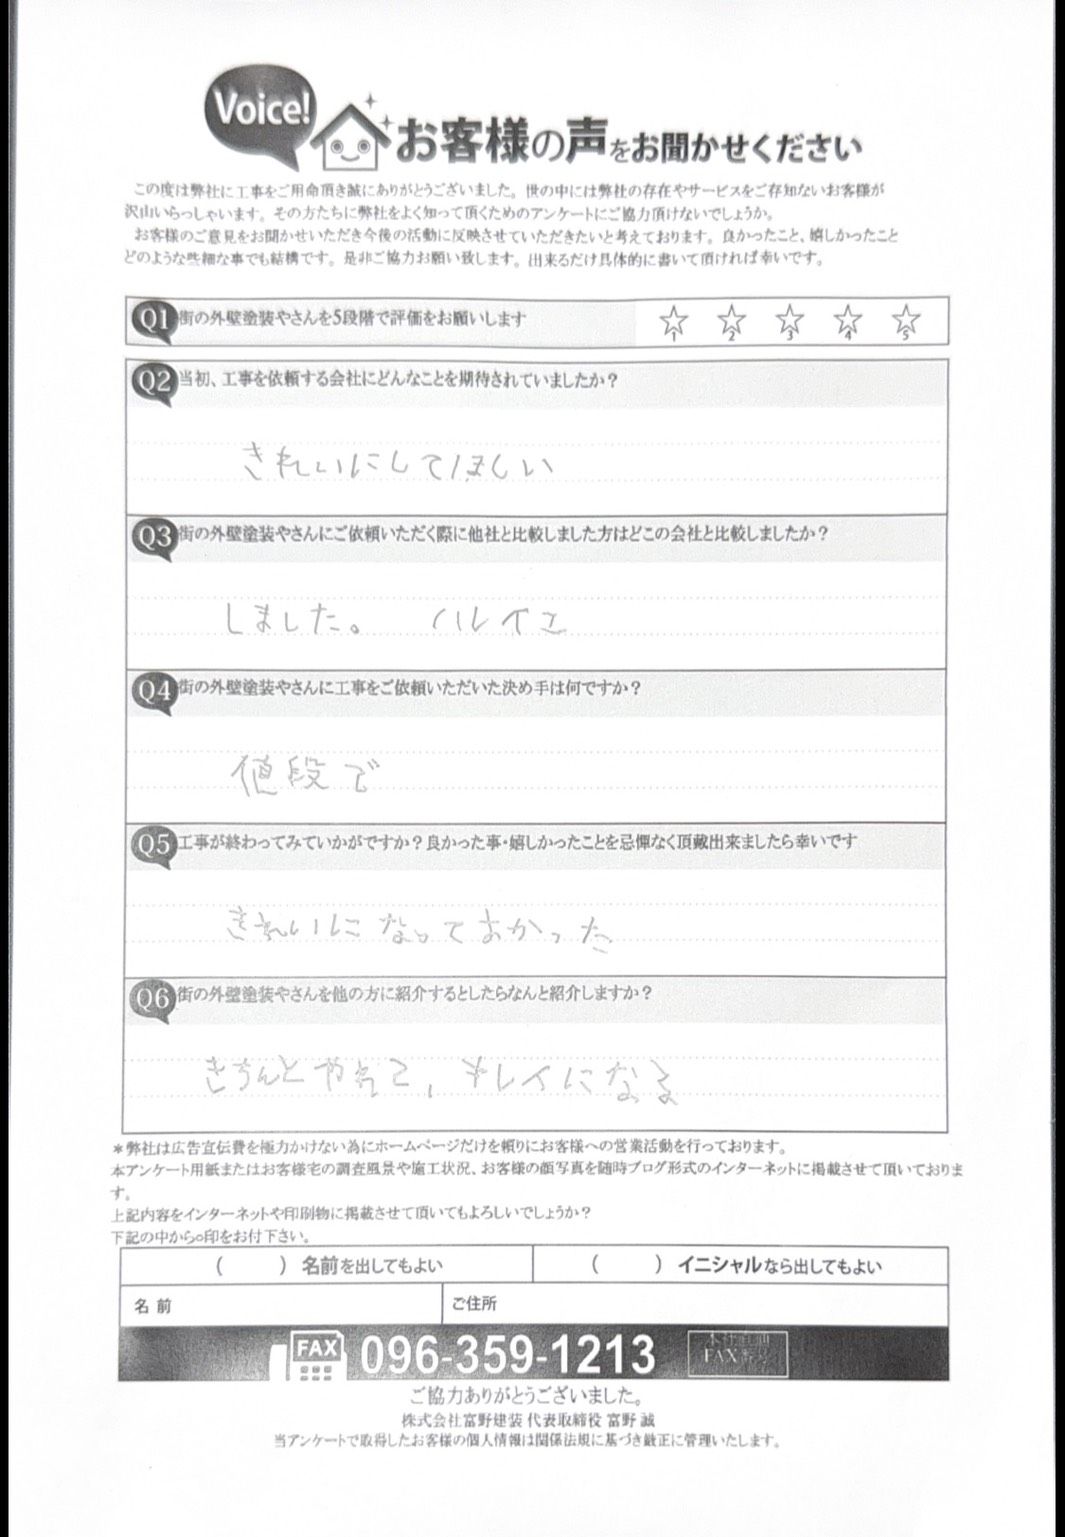 Voice!
お客様の声をお聞かせください
この度は弊社に工事をご用命頂き誠にありがとうございました。世の中には弊社の存在やサービスをご存知ないお客様が
沢山いらっしゃいます。その方たちに弊社をよく知って頂くためのアンケートにご協力頂けないでしょうか。
お客様のご意見をお聞かせいただき今後の活動に反映させていただきたいと考えております。良かったこと、嬉しかったこと
どのような些細な事でも結構です。是非ご協力お願い致します。出来るだけ具体的に書いて頂ければ幸いです。
Q1 街の外壁塗装やさんを5段階で評価をお願いします ☆1 ☆2 ☆3 ☆4 ☆5
Q2 当初、工事を依頼する会社にどんなことを期待されていましたか？
きれいにしてほしい
Q3 街の外壁塗装やさんにご依頼いただく際に他社と比較しました方はどこの会社と比較しましたか？
しました。
Q4 街の外壁塗装やさんに工事をご依頼いただいた決め手は何ですか？
値段で
Q5 工事が終わってみていかがですか？良かった事・嬉しかったことを忌憚なく頂戴出来ましたら幸いです
きれいになってよかった
Q6 街の外壁塗装やさんを他の方に紹介するとしたらなんと紹介しますか？
きちんと キレイになる
＊弊社は広告宣伝費を極力かけない為にホームページだけを頼りにお客様への営業活動を行っております。
本アンケート用紙またはお客様宅の調査風景や施工状況、お客様の顔写真を随時ブログ形式のインターネットに掲載させて頂いておりま
す。
上記内容をインターネットや印刷物に掲載させて頂いてもよろしいでしょうか？
下記の中から○印をお付下さい。
（　　）名前を出してもよい （　　）イニシャルなら出してもよい
名前 ご住所
FAX 096-359-1213 本社直通
FAX番号
ご協力ありがとうございました。
株式会社富野建装 代表取締役 富野 誠
当アンケートで取得したお客様の個人情報は関係法規に基づき厳正に管理いたします。